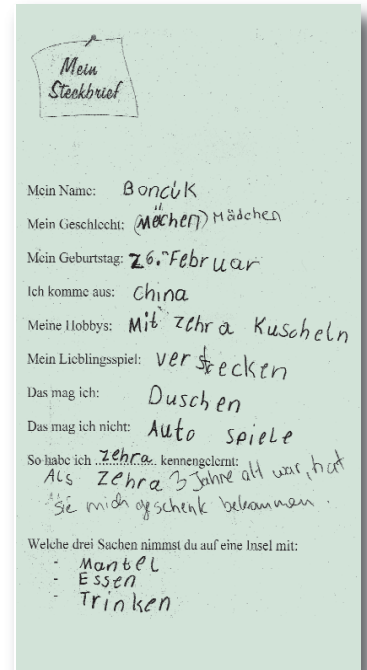 Mein
Steckbrief
Mein Name: Boncuk
Mein Geschlecht: (Mächen) Mädchen
Mein Geburtstag: 26. Februar
Ich komme aus: China
Meine Hobbys: Mit Zehra Kuscheln
Mein Lieblingsspiel: verstecken
Das mag ich: Duschen
Das mag ich nicht: Auto spiele
So habe ich Zehra kennengelernt:
Als Zehra 3 Jahre alt war, hat
sie mich geschenk bekommen.
Welche drei Sachen nimmst du auf eine Insel mit:
- Mantel
- Essen
- Trinken